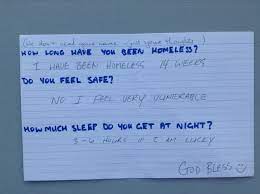 (We don't need your name - just your thoughts)
HOW LONG HAVE YOU BEEN HOMELESS?
I HAVE BEEN HOMELESS 14 WEEKS
DO YOU FEEL SAFE?
NO I FEEL VERY VULNERABLE
HOW MUCH SLEEP DO YOU GET AT NIGHT?
3-4 HOURS IF I AM LUCKY
GOD BLESS